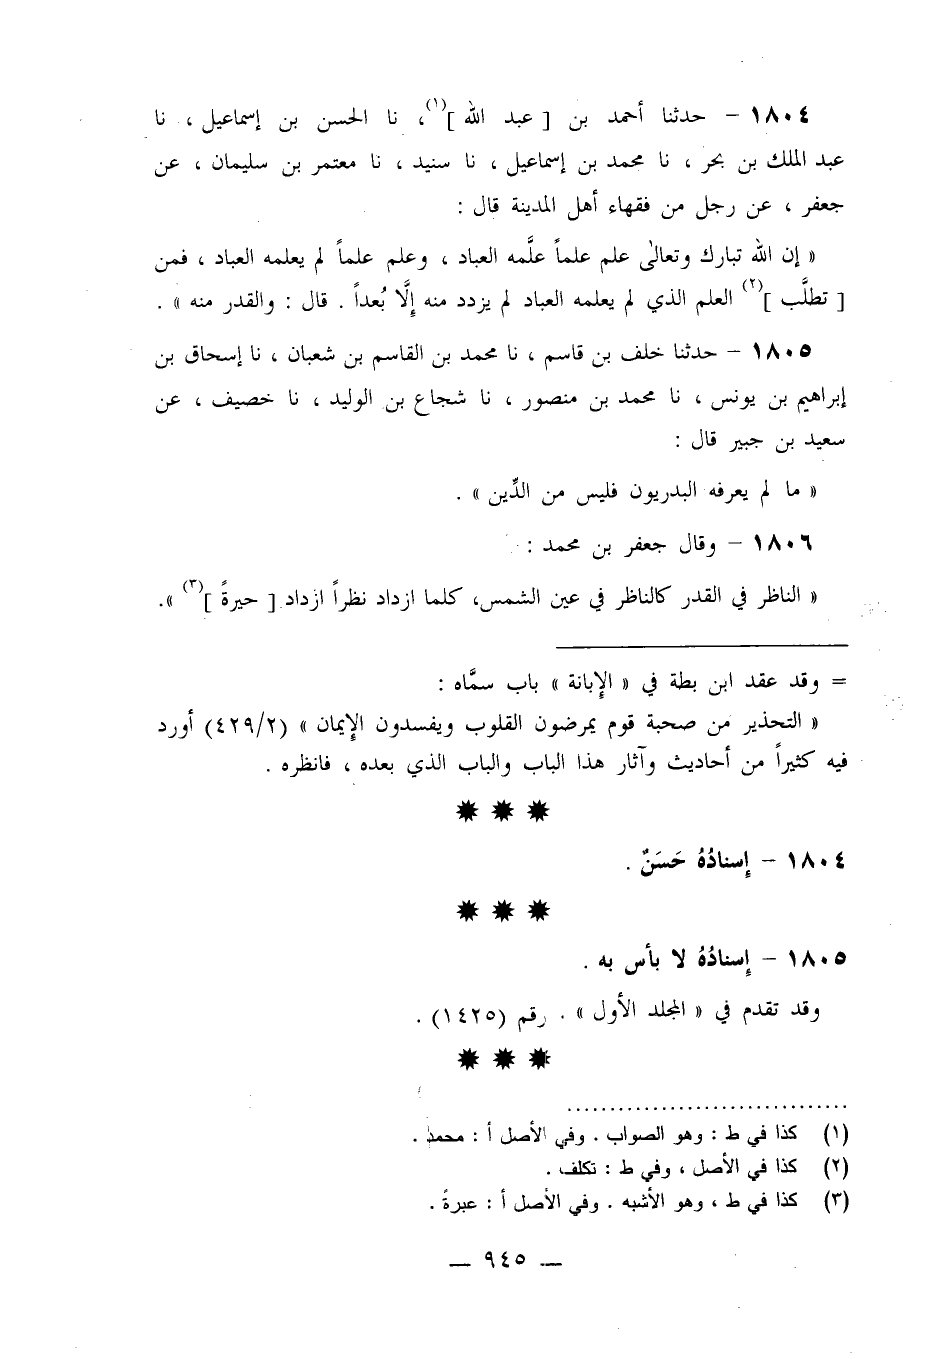 ١٨٠٤ – حدثنا أحمد بن [ عبد الله ](١)، نا الحسن بن إسماعيل ، نا
عبد الملك بن بحر ، نا محمد بن إسماعيل ، نا سنيد ، نا معتمر بن سليمان ، عن
جعفر ، عن رجل من فقهاء أهل المدينة قال :
« إن الله تبارك وتعالىٰ علم علماً علَّمه العباد ، وعلم علماً لم يعلمه العباد ، فمن
[ تطلَّب ](٢) العلم الذي لم يعلمه العباد لم يزدد منه إلَّا بُعداً . قال : والقدر منه » .
١٨٠٥ – حدثنا خلف بن قاسم ، نا محمد بن القاسم بن شعبان ، نا إسحاق بن
إبراهيم بن يونس ، نا محمد بن منصور ، نا شجاع بن الوليد ، نا خصيف ، عن
سعيد بن جبير قال :
« ما لم يعرفه البدريون فليس من الدِّين » .
١٨٠٦ – وقال جعفر بن محمد :
« الناظر في القدر كالناظر في عين الشمس، كلما ازداد نظراً ازداد [ حيرةً ](٣) ».
= وقد عقد ابن بطة في « الإبانة » باب سمَّاه :
« التحذير من صحبة قوم يمرضون القلوب ويفسدون الإيمان » (٤٢٩/٢) أورد
فيه كثيراً من أحاديث وآثار هذا الباب والباب الذي بعده ، فانظره .
١٨٠٤ – إسنادُهُ حَسَنٌ .
١٨٠٥ – إسنادُهُ لا بأس به .
وقد تقدم في « المجلد الأول » . رقم (١٤٢٥) .
(١) كذا في ط : وهو الصواب . وفي الأصل أ : محمد .
(٢) كذا في الأصل ، وفي ط : تكلف .
(٣) كذا في ط ، وهو الأشبه . وفي الأصل أ : عبرةً .
— ٩٤٥ —